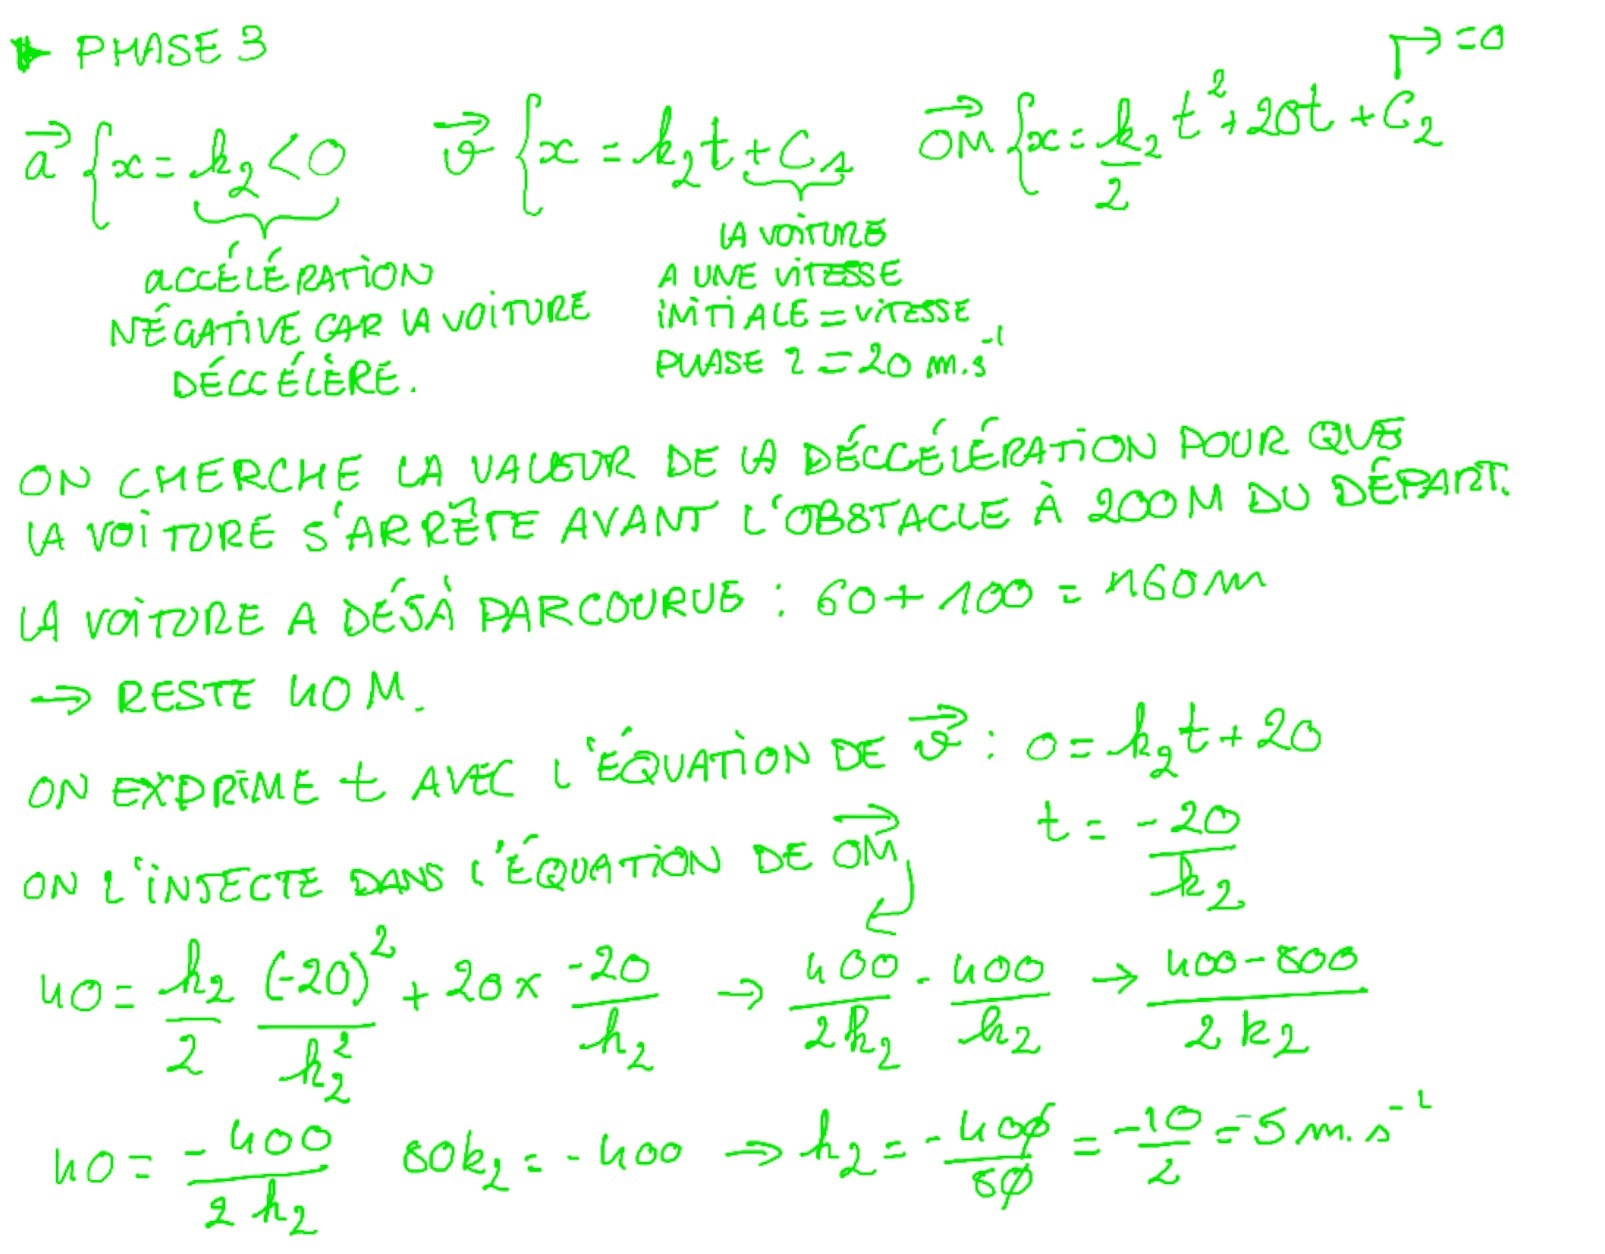 ▶ PHASE 3
→ = 0
a⃗ { x = k₂ < 0   v⃗ { x = k₂t + C₁   OM⃗ { x = k₂/2 t² + 20t + C₂
ACCÉLÉRATION
NÉGATIVE CAR LA VOITURE
DÉCCÉLÈRE.
LA VOITURE
A UNE VITESSE
INITIALE = VITESSE
PHASE 2 = 20 m.s⁻¹
ON CHERCHE LA VALEUR DE LA DÉCCÉLÉRATION POUR QUE
LA VOITURE S'ARRÊTE AVANT L'OBSTACLE À 200M DU DÉPART.
LA VOITURE A DÉJÀ PARCOURUE : 60 + 100 = 160m
→ RESTE 40 M.
ON EXPRIME t AVEC L'ÉQUATION DE v⃗ : 0 = k₂t + 20
t = -20/k₂
ON L'INJECTE DANS L'ÉQUATION DE OM⃗
40 = k₂/2 (-20)²/k₂² + 20 × -20/k₂ → 400/2k₂ - 400/k₂ → 400-800/2k₂
40 = -400/2k₂   80k₂ = -400 → k₂ = -400/80 = -10/2 = -5 m.s⁻²